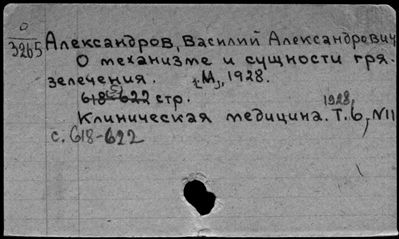 О
3265
Александров, Василий Александрович
О механизме и сущности гря-
зелечения. [М], 1928.
618-622 стр.
Клиническая медицина. 1928, Т. 6, №11
с. 618-622